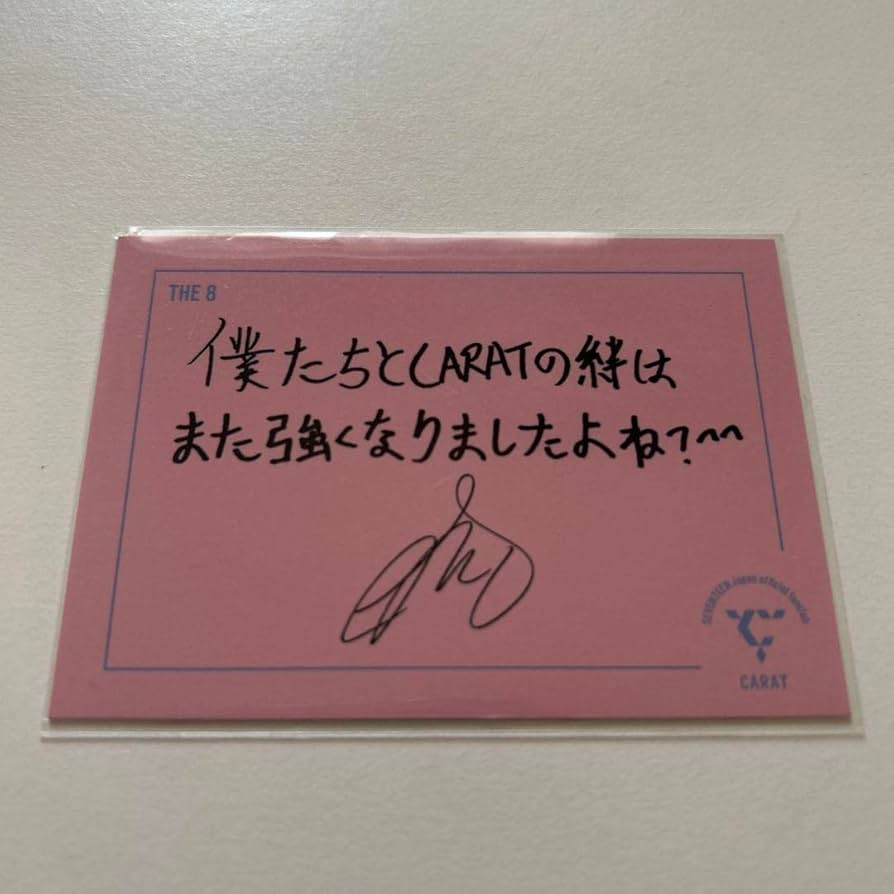 THE 8
僕たちとCARATの絆は
また強くなりましたよね?^^
SEVENTEEN Japan official fanclub
CARAT